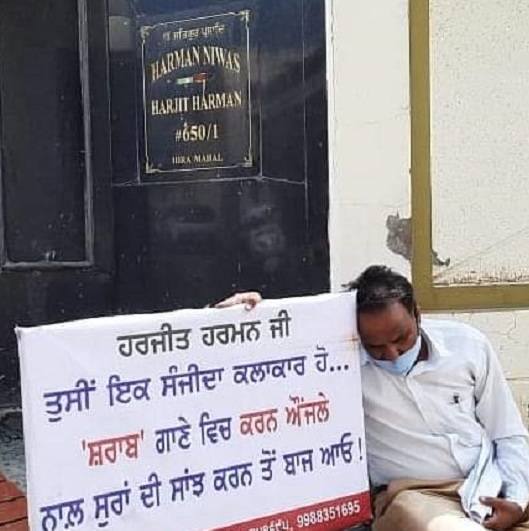 ੴ ਸਤਿਗੁਰ ਪ੍ਰਸਾਦਿ
HARMAN NIWAS
HARJIT HARMAN
#650/1
HIRA MAHAL
ਹਰਜੀਤ ਹਰਮਨ ਜੀ
ਤੁਸੀਂ ਇਕ ਸੰਜੀਦਾ ਕਲਾਕਾਰ ਹੋ...
'ਸ਼ਰਾਬ' ਗਾਣੇ ਵਿਚ ਕਰਨ ਔਂਜਲੇ
ਨਾਲ਼ ਸੁਰਾਂ ਦੀ ਸਾਂਝ ਕਰਨ ਤੋਂ ਬਾਜ ਆਓ!
9988351695